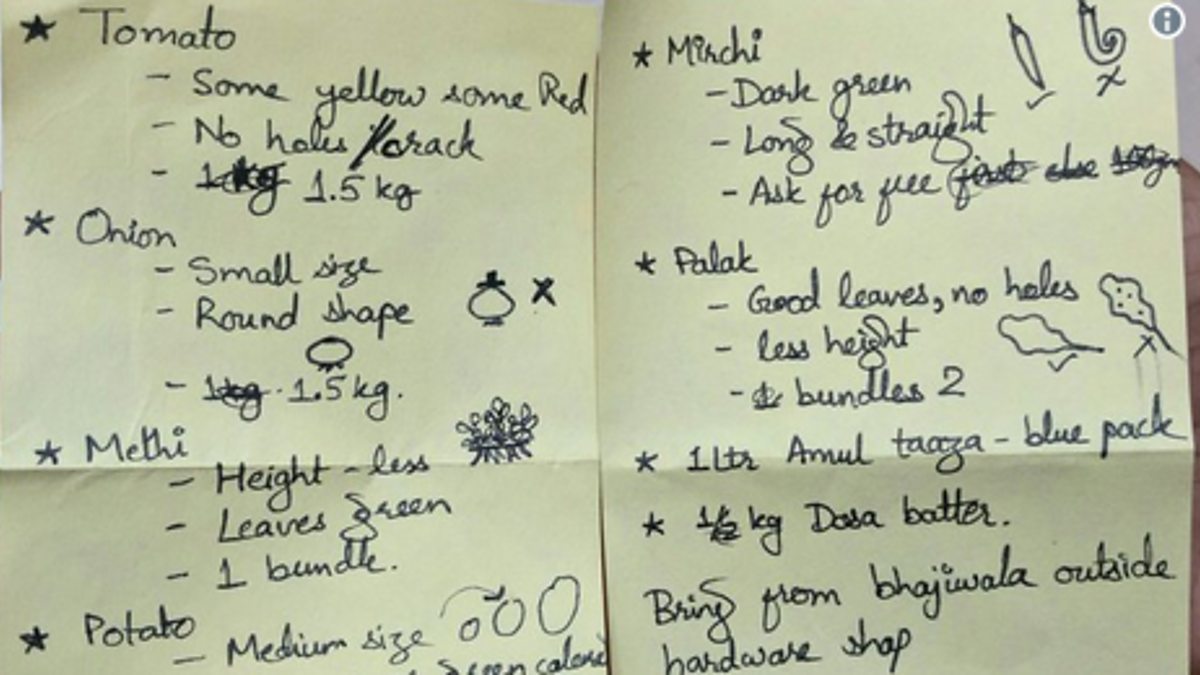 ★ Tomato
- Some yellow some Red
- No holes / crack
- 1 kg 1.5 kg
★ Onion
- Small size
- Round shape
- 1 kg. 1.5 kg.
★ Methi
- Height - less
- Leaves green
- 1 bundle.
★ Potato
- Medium size
green
★ Mirchi
- Dark green
- Long & straight
- Ask for free
★ Palak
- Good leaves, no holes
- less height
- bundles 2
★ 1 Ltr Amul taaza - blue pack
★ kg Dosa batter.
Bring from bhajiwala outside
hardware shop